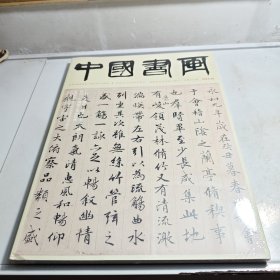 中國書画
永和九年歲在癸丑暮春
于會稽山陰之蘭亭脩稧事
也群賢畢至少長咸集此地
有峻領茂林脩竹又有清流激
湍暎帶左右引以為流觴曲水
列坐其次雖無絲竹管弦之
盛一觴一詠亦足以暢叙幽情
是日也天朗氣清惠風和暢仰
觀宇宙之大俯察品類之盛